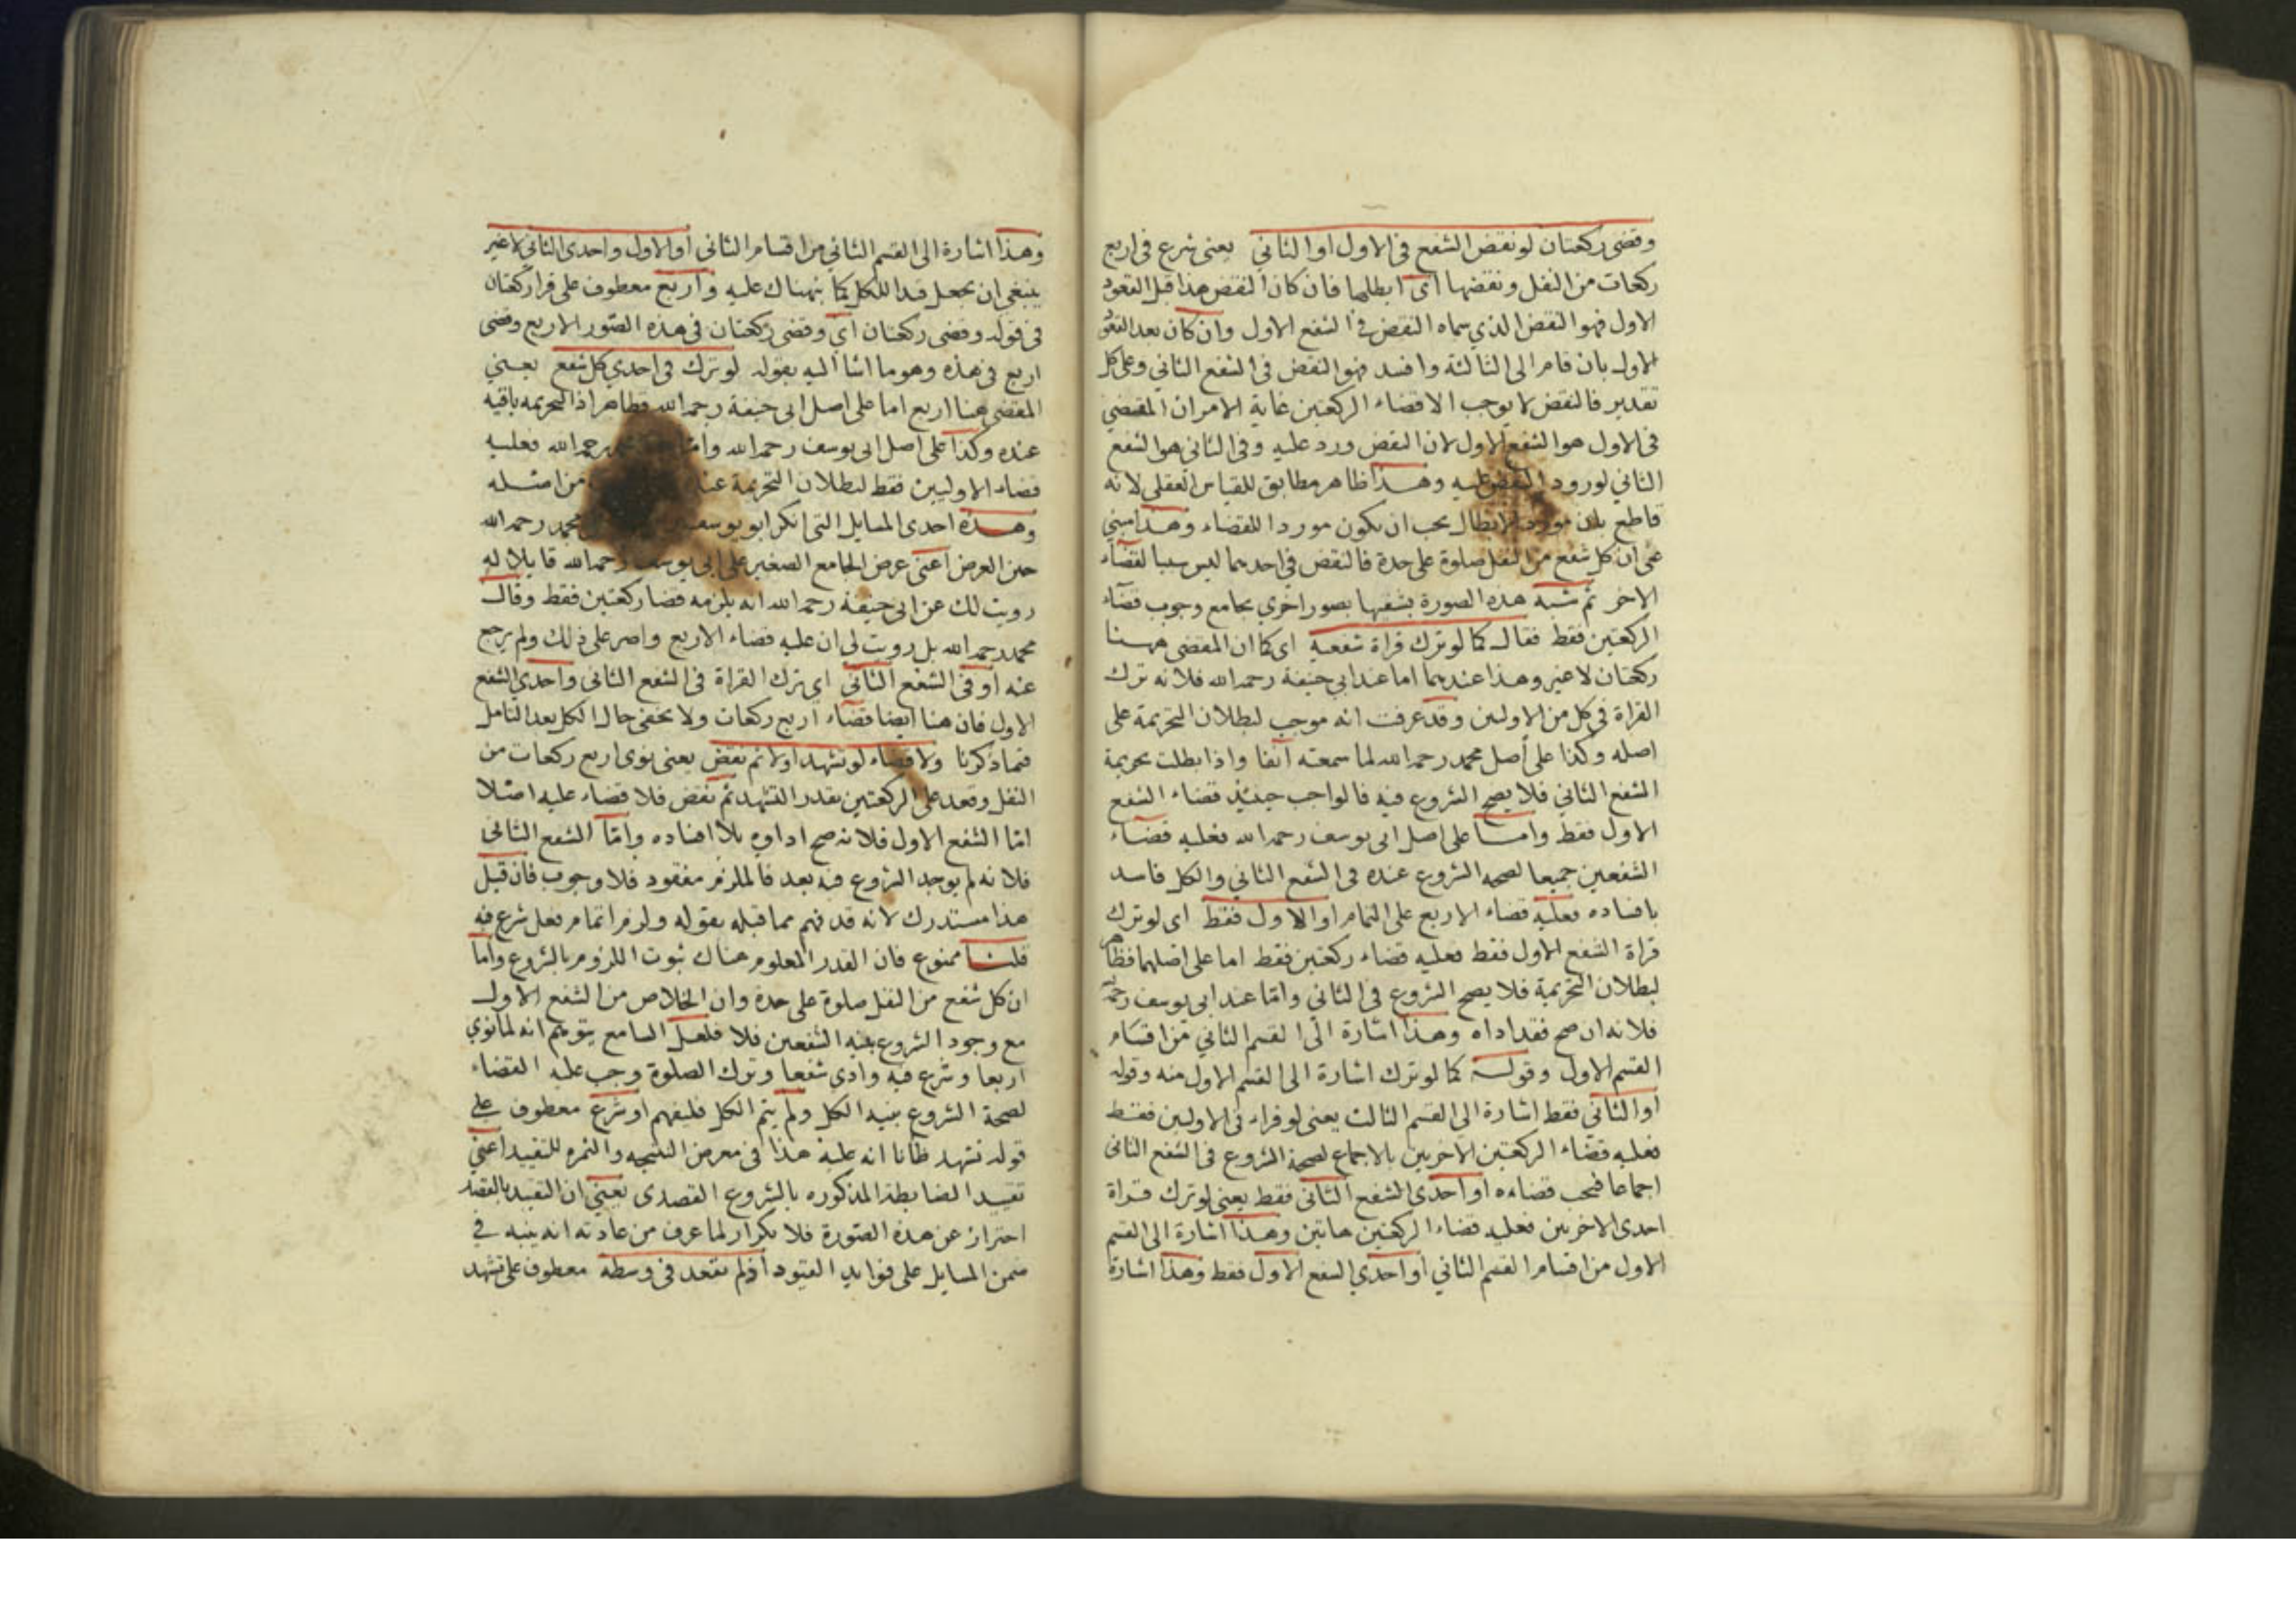 وقضى ركعتان لو نقض الشفع في الاول او الثاني يعني شرع في اربع
ركعات من النفل ونقضها اى ابطلها فان كان النقض هذا قبل القعود
الاول فهو النقض الذي سماه النقض في الشفع الاول وان كان بعد القعود
الاول بان قام الى الثالثة وافسد فهو النقض في الشفع الثاني وعلى كل
تقدير فالنقض لا يوجب الا قضاء الركعتين غاية الامر ان المقضي
في الاول هو الشفع الاول لان النقض ورد عليه وفي الثاني هو الشفع
الثاني لورود النقض عليه وهذا ظاهر مطابق للقياس العقلي لانه
قاطع بان مورد الابطال يجب ان يكون موردا للقضاء وهذا مبني
على ان كل شفع من النفل صلوة على حدة فالنقض في احدهما ليس سببا لقضاء
الاخر ثم شبه هذه الصورة بشقيها بصور اخرى بجامع وجوب قضاء
الركعتين فقط فقال كما لو ترك قراة شفعيه اى كما ان المقضى ههنا
ركعتان لا غير وهذا عندهما اما عند ابي حنيفة رحمه الله فلانه ترك
القراة في كل من الاولين وقد عرفت انه موجب لبطلان التحريمة على
اصله وكذا على أصل محمد رحمه الله لما سمعته آنفا واذا بطلت تحريمة
الشفع الثاني فلا يصح الشروع فيه فالواجب حينئذ قضاء الشفع
الاول فقط واما على اصل ابى يوسف رحمه الله فعليه قضاء
الشفعين جميعا لصحه الشروع عنده فى الشفع الثاني والكل فاسد
بافساده فعليه قضاء الاربع على التمام او الاول فقط اى لو ترك
قراة الشفع الاول فقط فعليه قضاء ركعتين فقط اما على اصلهما فظاهر
لبطلان التحريمة فلا يصح الشروع في الثاني واما عند ابى يوسف رحمه
فلانه ان صح فقد اداه وهذا اشارة الى القسم الثاني من اقسام
القسم الاول وقوله كما لو ترك اشارة الى القسم الاول منه وقوله
او الثاني فقط اشارة الى القسم الثالث يعنى لو قراء فى الاولين فقط
فعليه قضاء الركعتين الاخريين بالاجماع لصحة الشروع فى الشفع الثانى
اجماعا فيجب قضاءه او احدى الشفع الثانى فقط يعنى لو ترك قراة
احدى الاخريين فعليه قضاء الركعتين هاتين وهذا اشارة الى القسم
الاول من اقسام القسم الثاني او احدي الشفع الاول فقط وهذا اشارة
وهذا اشارة الى القسم الثاني من اقسام الثانى او الاول واحدى الثاني لا غير
ينبغي ان يجعل قيدا للكل كما نبهناك عليه واربع معطوف على قرا ركعتان
فى قوله وقضى ركعتان اى وقضى ركعتان فى هذه الصور الاربع وقضى
اربع فى هذه وهو ما اشا اليه بقوله لو ترك فى احدي كل شفع يعني
المقضى هنا اربع اما على اصل ابى حنيفة رحمه الله فظاهر اذ التحريمه باقيه
عنده وكذا على اصل ابى يوسف رحمه الله واما رحمه الله فعليه
قضاء الاوليين فقط لبطلان التحريمة من اصله
وهذه احدى المسايل التى انكر ابو يوسف محمد رحمه الله
حين العرض اعنى عرض الجامع الصغير على ابى يوسف رحمه الله قايلا له
رويت لك عن ابى حنيفة رحمه الله انه يلزمه قضا ركعتين فقط وقال
محمد رحمه الله بل رويت لى ان عليه قضاء الاربع واصر على ذلك ولم يرجع
عنه او فى الشفع الثانى اى ترك القراة فى الشفع الثانى واحدى الشفع
الاول فان هنا ايضا قضاء اربع ركعات ولا يخفى حال الكل بعد التامل
فيما ذكرنا ولا قضاء لو تشهد اولا ثم نقض يعنى نوى اربع ركعات من
النفل وقعد على الركعتين بقدر التشهد ثم نقض فلا قضاء عليه اصلا
اما الشفع الاول فلانه صح اداوه بلا افساده واما الشفع الثانى
فلانه لم يوجد الشروع فيه بعد فالملزم مفقود فلا وجوب فان قيل
هذا مستدرك لانه قد فهم مما قبله بقوله ولزم اتمام فعل شرع فيه
قلنا ممنوع فان القدر المعلوم هناك ثبوت اللزوم بالشروع واما
ان كل شفع من النفل صلوة على حدة وان الخلاص من الشفع الاول
مع وجود الشروع بنيه الشفعين فلا فلعل السامع يتوهم انه لما نوي
اربعا وشرع فيه وادى شفعا وترك الصلوة وجب عليه القضاء
لصحة الشروع بنيه الكل ولم يتم الكل فليفهم او شرع معطوف على
قوله تشهد ظانا انه عليه هذا فى معرض النتيجه والثمره للتقييد اعني
تقييد الضابطة المذكوره بالشروع القصدى يعني ان التقييد بالقصد
احتراز عن هذه الصورة فلا تكرار لما عرف من عادته انه ينبه في
ضمن المسايل على فوايد القيود او لم يقعد فى وسطه معطوف على تشهد